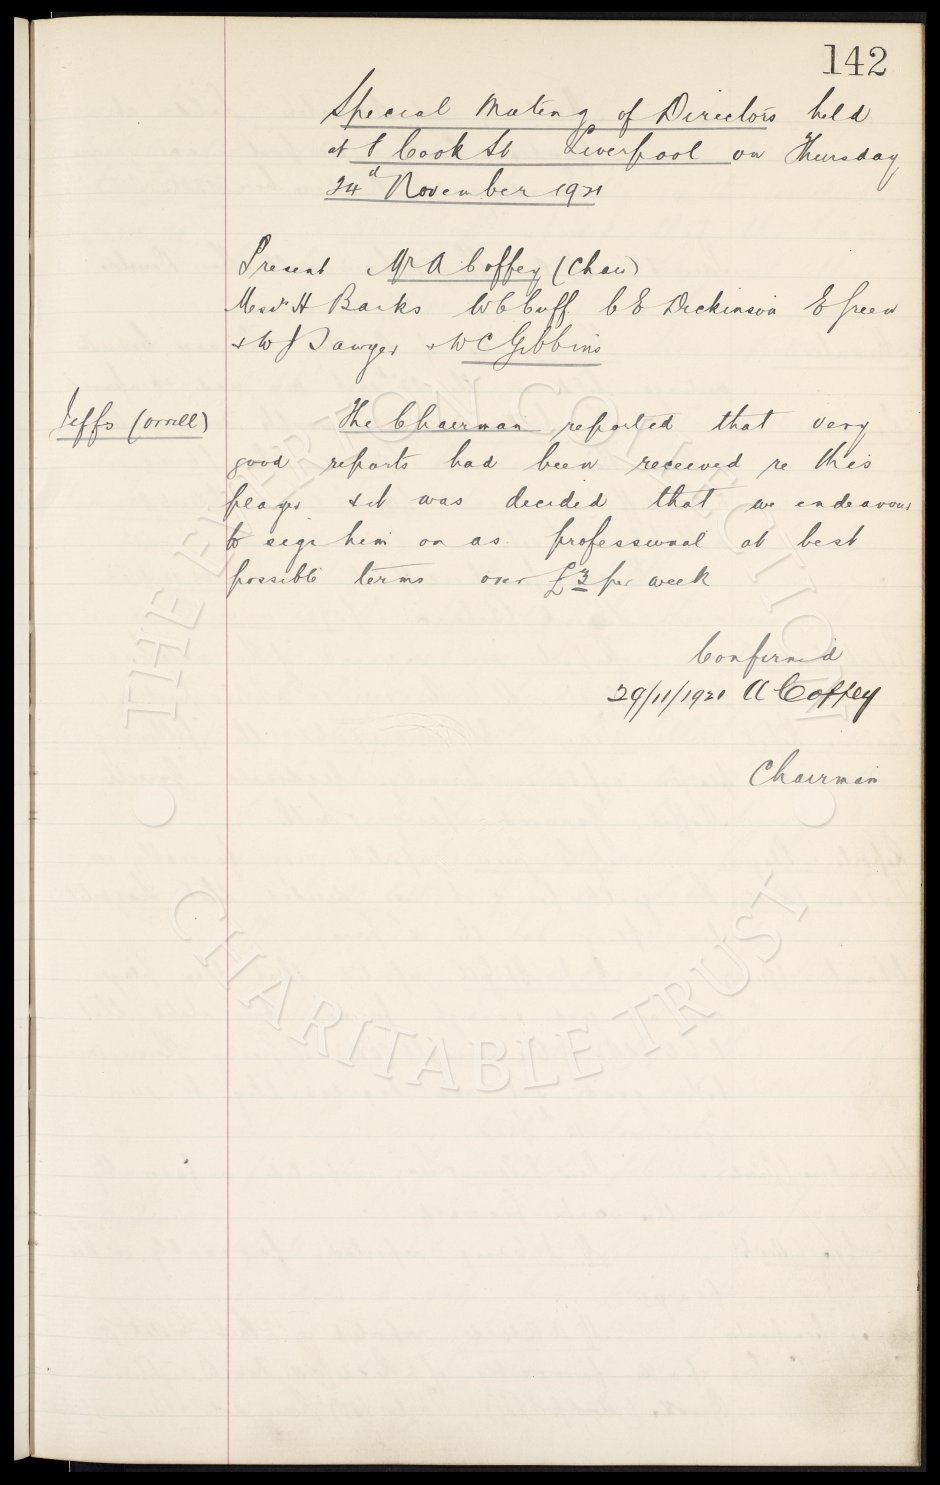 142
Special Meeting of Directors held
at 8 Cook St Liverpool on Thursday
24d November 1921
Present Mr A Coffey (Chair)
Messrs H Banks W C Cuff C E Dickinson E Green
& W J Sawyer & W C Gibbins
Jeffs (Orrell)
The Chairman reported that very
good reports had been received re this
player & it was decided that we endeavour
to sign him on as professional at best
possible terms over £3 per week
Confirmed
29/11/1921 A Coffey
Chairman
THE EVERTON COLLECTION
CHARITABLE TRUST